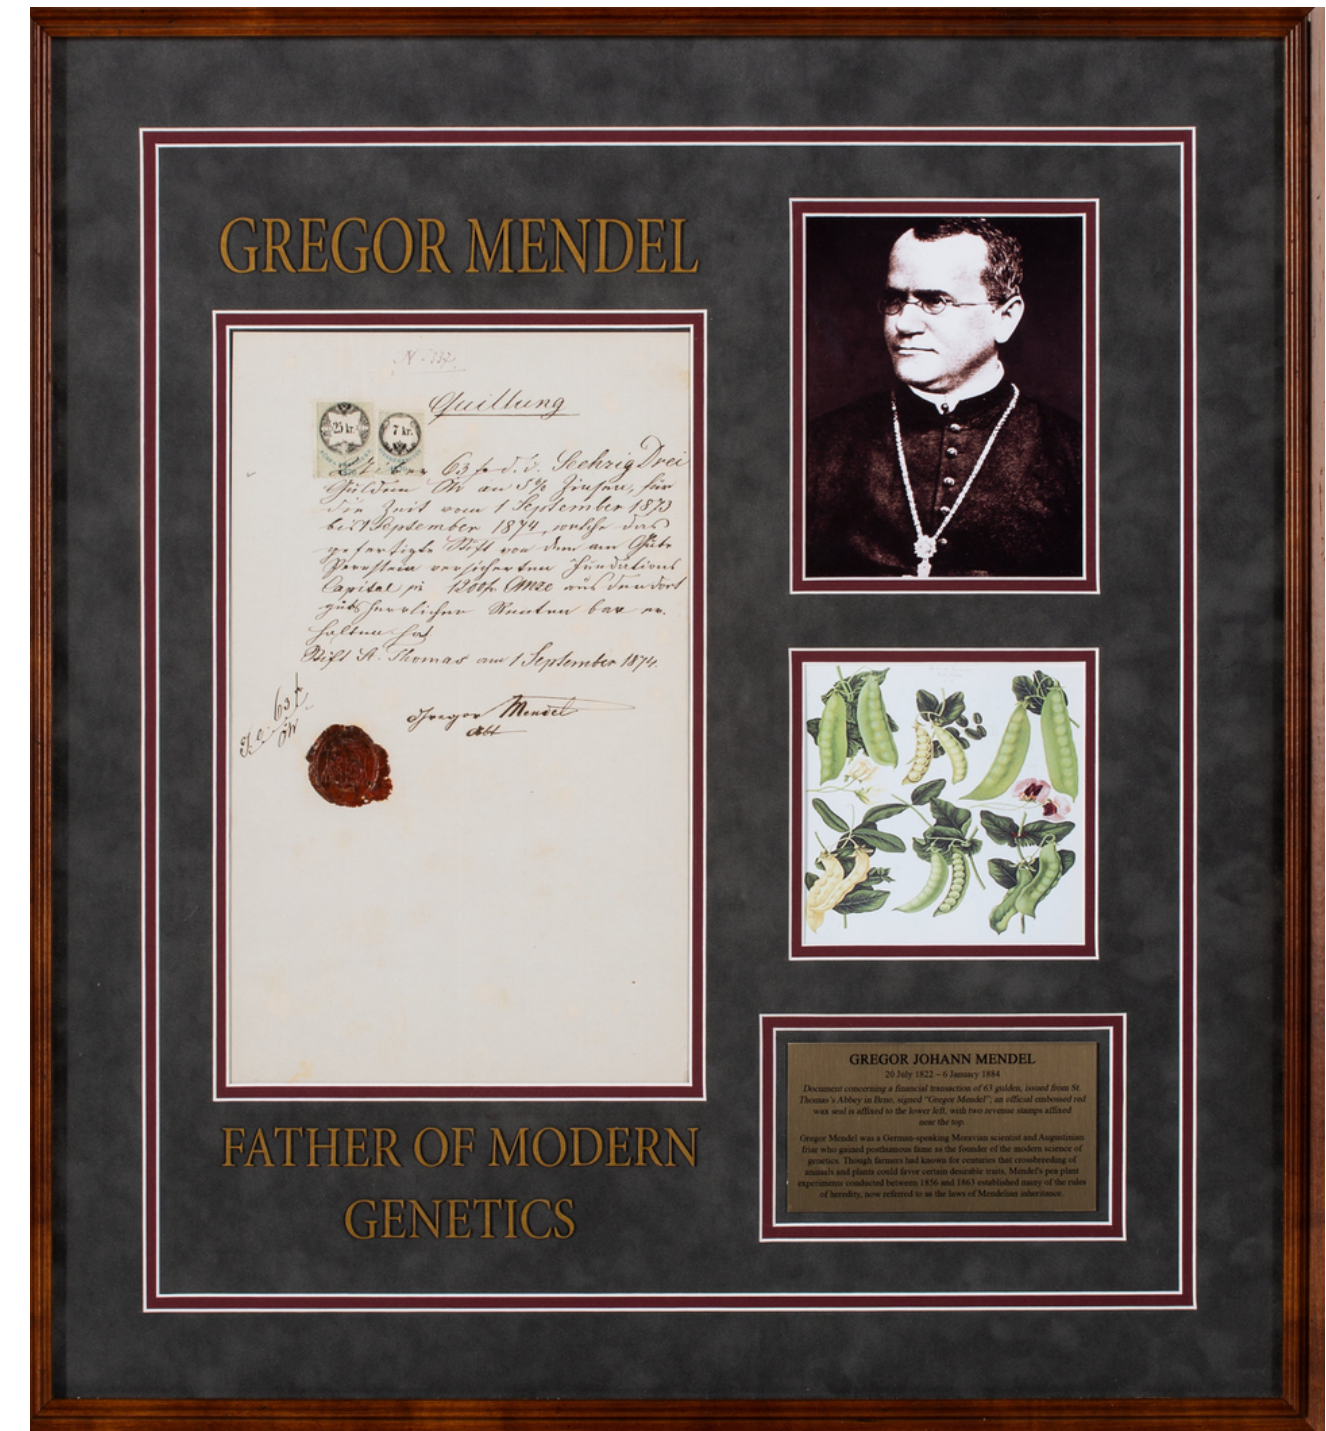 GREGOR MENDEL
N. 337.
Quittung
25 kr.
7 kr.
Über 63 f d. i. Sechzig Drei
Gulden ÖW an 5% Zinsen, für
die Zeit vom 1 September 1873
bis 1 September 1874, welche das
gefertigte Stift von dem am Gute
Pernstein versicherten Fundations
Capital pr 1200 f CMze aus den dort
gutsherrlichen Renten bar er-
halten hat
Stift St. Thomas am 1 September 1874.
63 f
ÖW
Gregor Mendel
Abt
FATHER OF MODERN
GENETICS
GREGOR JOHANN MENDEL
20 July 1822 – 6 January 1884
Document concerning a financial transaction of 63 gulden, issued from St.
Thomas's Abbey in Brno, signed "Gregor Mendel"; an official embossed red
wax seal is affixed to the lower left, with two revenue stamps affixed
near the top.
Gregor Mendel was a German-speaking Moravian scientist and Augustinian
friar who gained posthumous fame as the founder of the modern science of
genetics. Though farmers had known for centuries that crossbreeding of
animals and plants could favor certain desirable traits, Mendel's pea plant
experiments conducted between 1856 and 1863 established many of the rules
of heredity, now referred to as the laws of Mendelian inheritance.